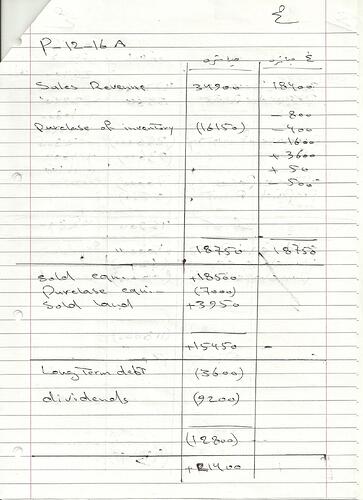 ٤
P-12-16A
مباشره غ مباشره
Sales Revenue 34900 18400
- 800
Purchase of inventory (16150) - 400
- 1600
+ 3600
+ 50
- 500
18750 18750
Sold equi. +18500
Purchase equi- (7000)
Sold land +3950
+15450 -
Long Term debt (3600)
dividends (9200)
(12800)
+21400